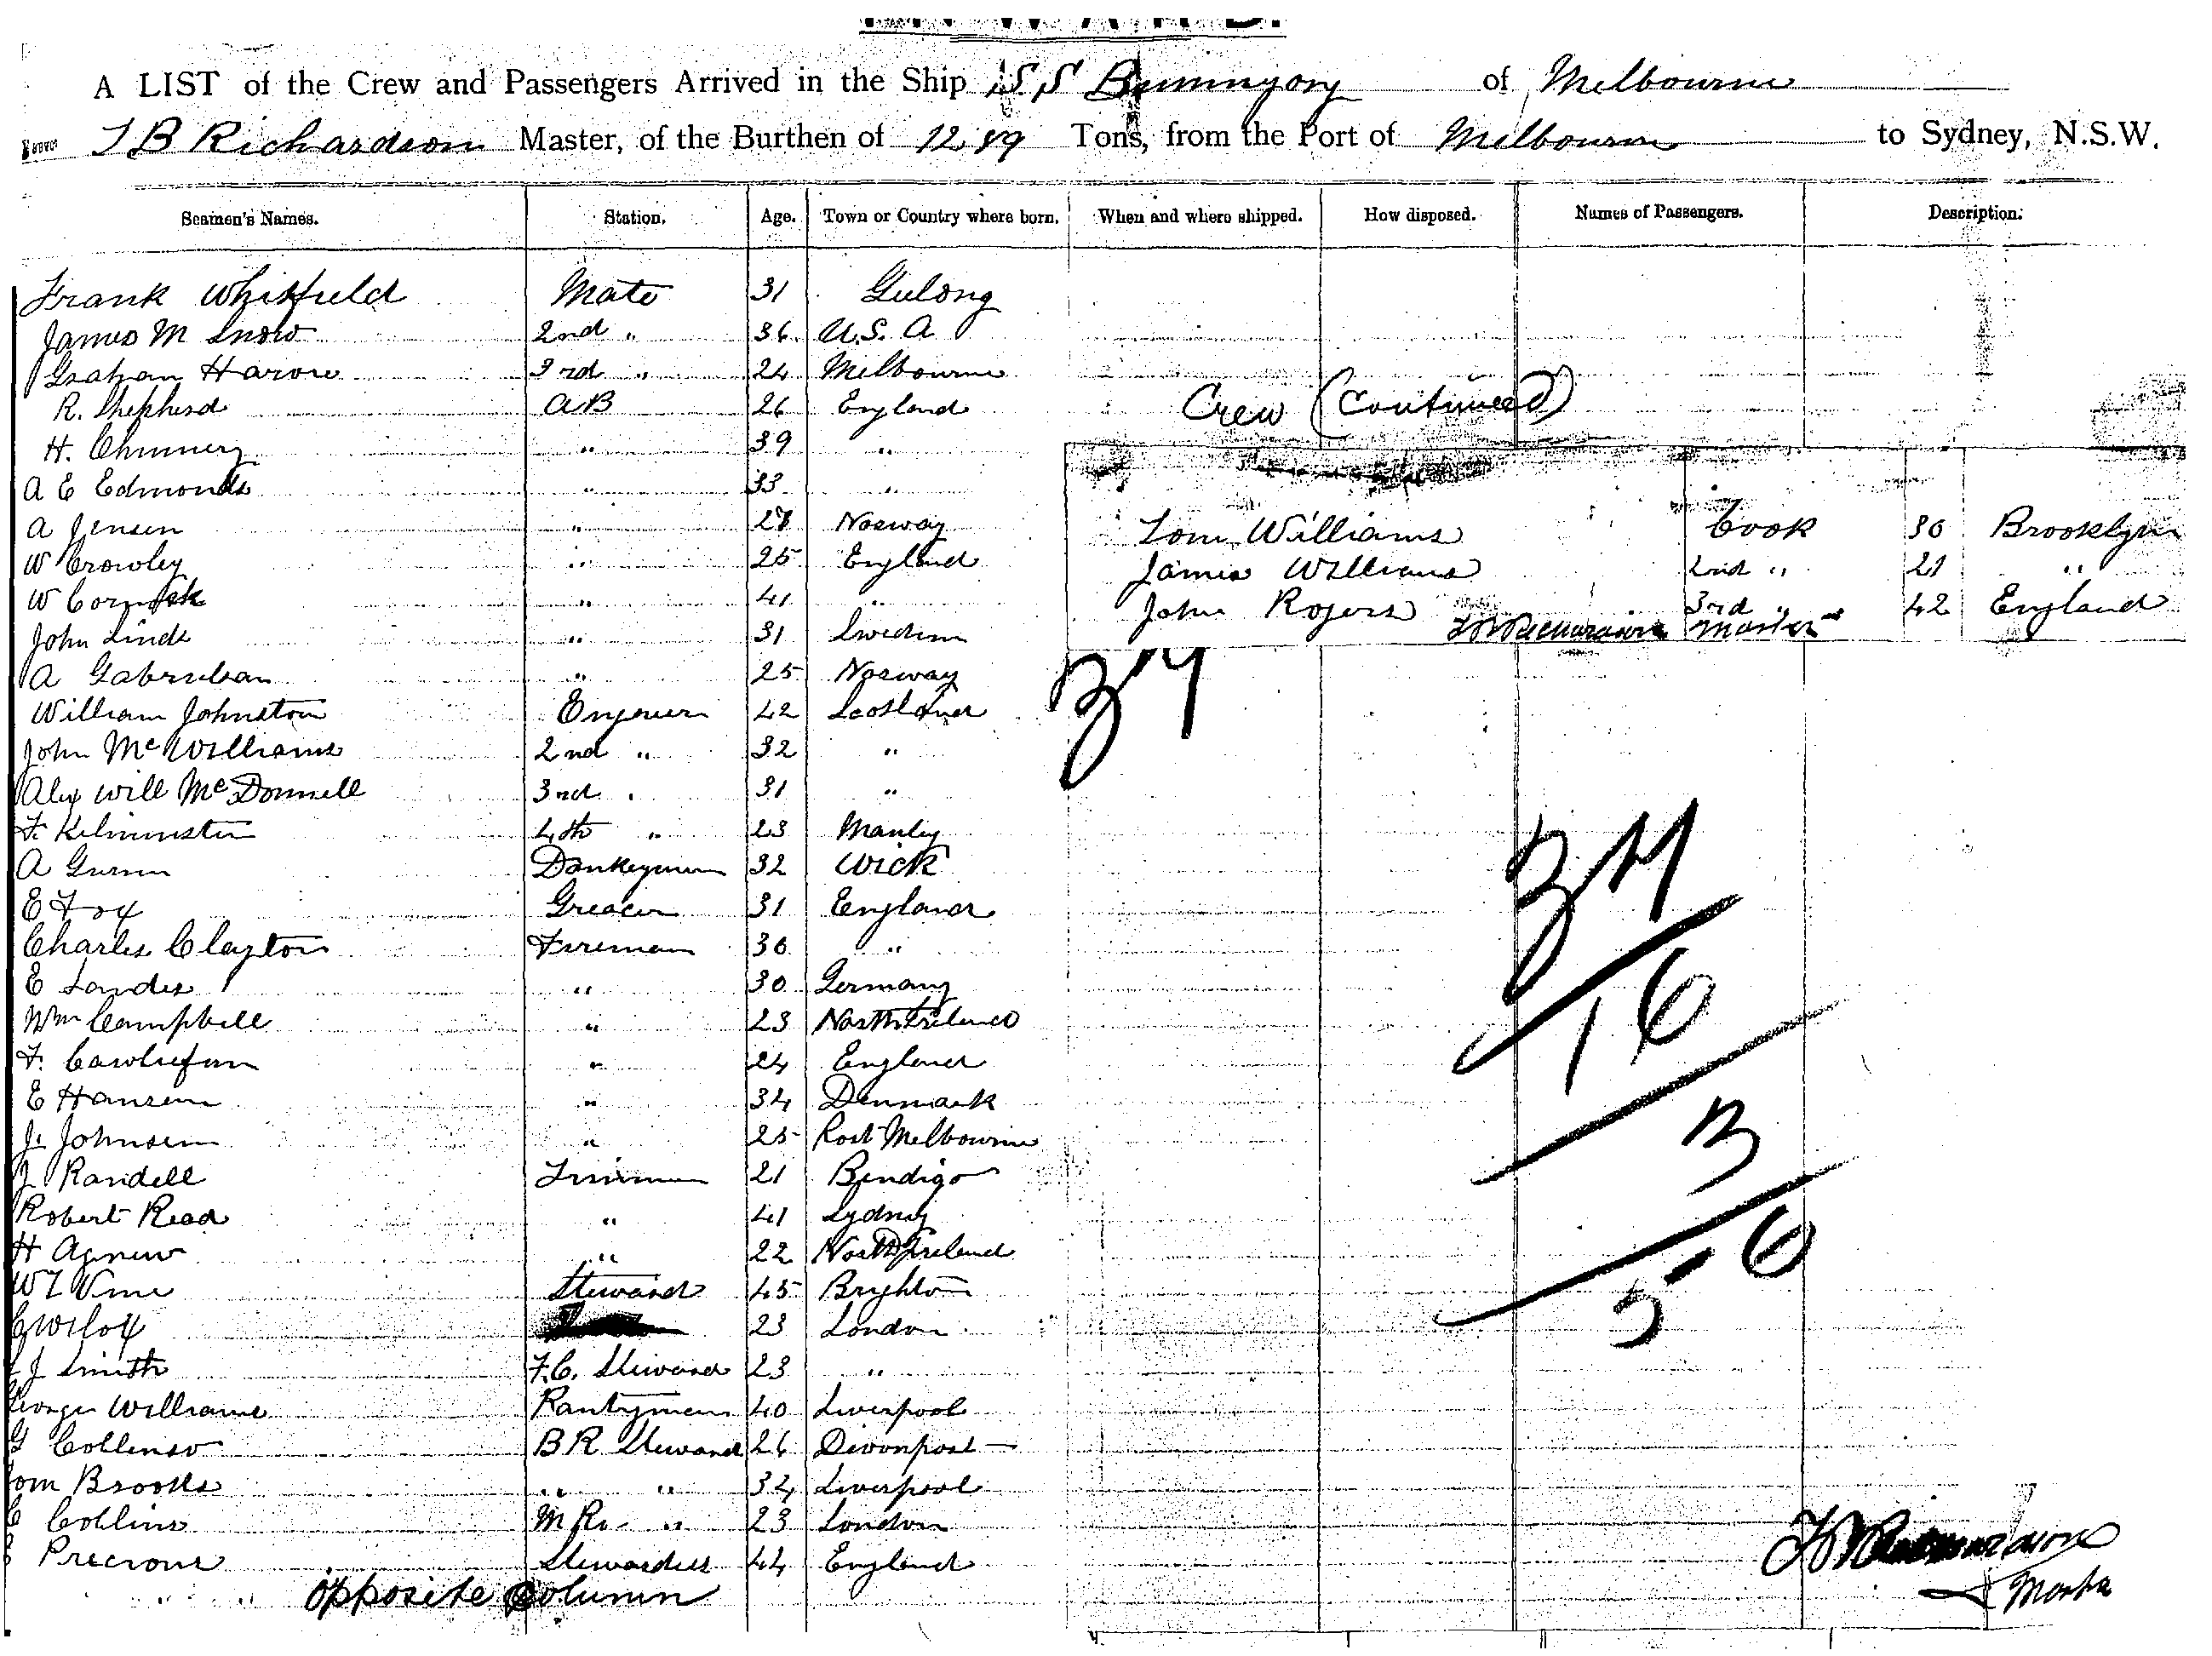 A LIST of the Crew and Passengers Arrived in the Ship SS Buninyong of Melbourne
T B Richardson Master, of the Burthen of 1289 Tons, from the Port of Melbourne to Sydney, N.S.W.
Seamen's Names. Station. Age. Town or Country where born. When and where shipped. How disposed. Names of Passengers. Description.
Frank Whitfield Mate 31 Gelong
James M Snow 2nd " 36 U.S.A
Graham Harow 3rd " 24 Melbourne
R. Shepherd AB 26 England
Crew (Continued)
H. " 39 "
A E Edmonds " 33 "
A Jensen " 27 Norway
Tom Williams Cook 30 Brooklyn
W Crowley " 25 England
James Williams 2nd " 21 "
W Cormack " 41 "
John Rogers 3rd " 42 England
Master
John Linde " 31 Sweden
A " 25 Norway
34
William Johnston Engineer 42 Scotland
John McWilliams 2nd " 32 "
Alex Will McDonnell 3rd " 31 "
F. Kilminster 4th " 23 Manly
A Gunn Donkeyman 32 Wick
34
E Fox Greaser 31 England
Charles Clayton Fireman 36 "
E Landes " 30 Germany
16
Wm Campbell " 23 North Ireland
F. " 24 England
E Hansen " 34 Denmark
J. Johnsen " 25 Port Melbourne
J Randell Trimmer 21 Bendigo
Robert Read " 41 Sydney
H Agnew " 22 North Ireland
56
W T Vine Steward 45 Brighton
23 London
J Smith F.C. Steward 23 "
George Williams Pantryman 40 Liverpool
G Collenso B R Steward 26 Devonport
Tom Brooks " " 34 Liverpool
C Collins M R " 23 London
E Precious Stewardess 44 England
Master
Opposite Column